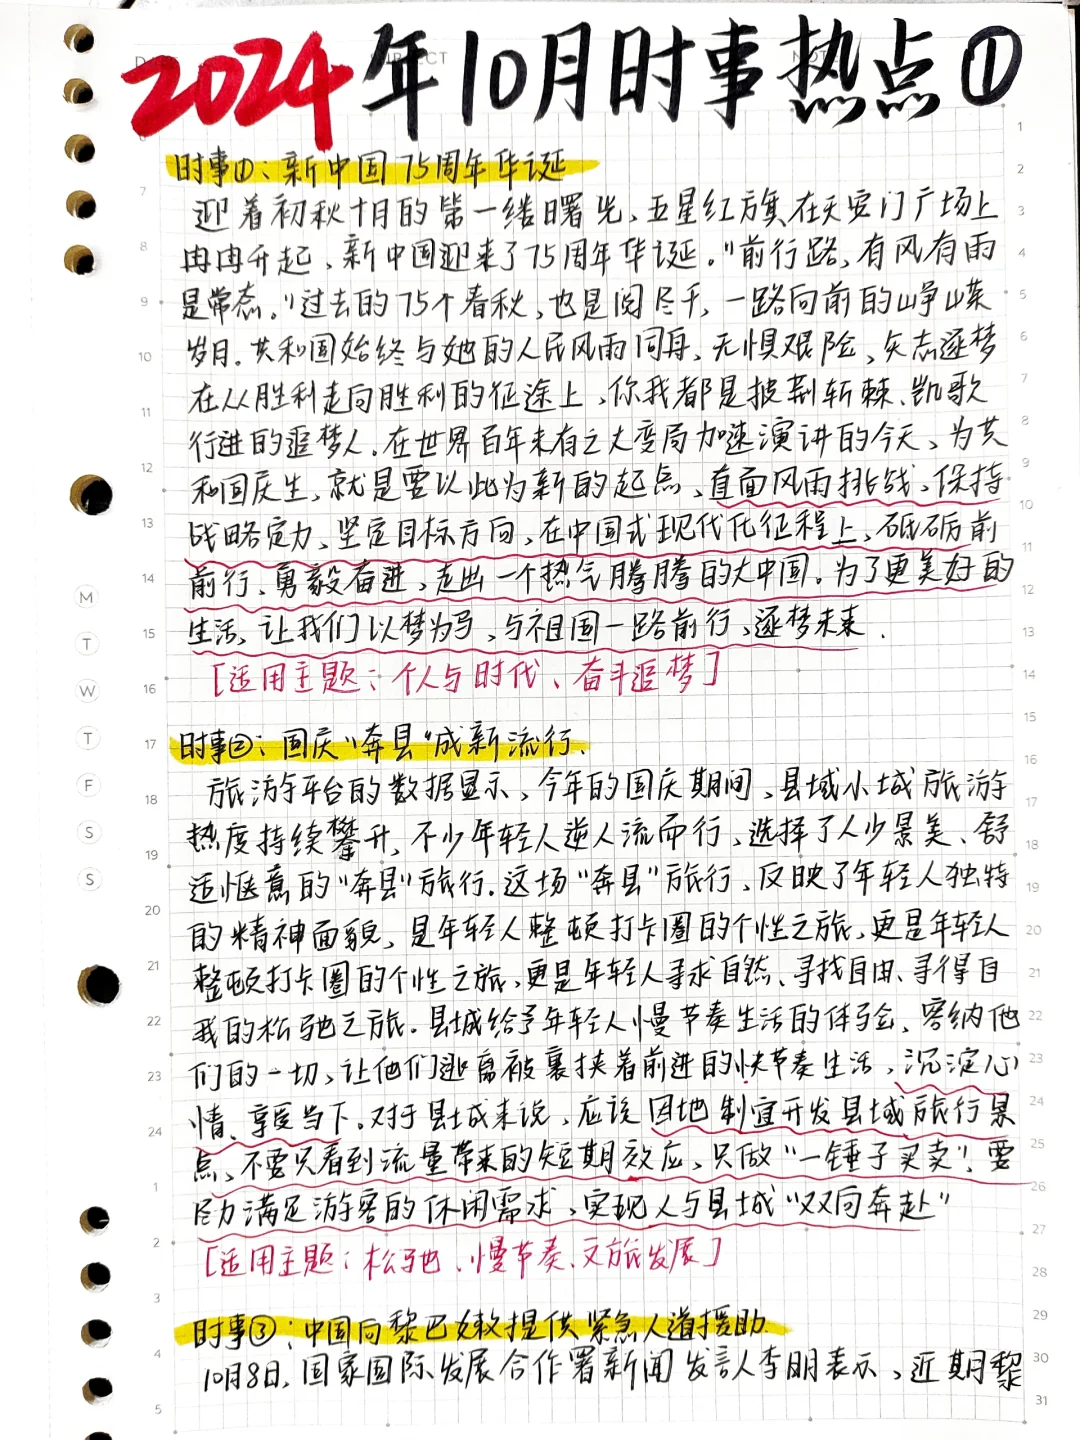 2024年10月时事热点①
时事①：新中国75周年华诞
迎着初秋十月的第一缕曙光、五星红旗在天安门广场上
冉冉升起、新中国迎来了75周年华诞。"前行路、有风有雨
是常态。"过去的75个春秋、也是阅尽千、一路向前的峥嵘
岁月.共和国始终与她的人民风雨同舟、无惧艰险、矢志逐梦
在从胜利走向胜利的征途上、你我都是披荆斩棘、凯歌
行进的追梦人.在世界百年未有之大变局加速演讲的今天、为共
和国庆生、就是要以此为新的起点、直面风雨挑战、保持
战略定力、坚定目标方向、在中国式现代化征程上、砥砺前
前行、勇毅奋进、走出一个热气腾腾的大中国。为了更美好的
生活、让我们以梦为马、与祖国一路前行、逐梦未来.
[适用主题：个人与时代、奋斗追梦]
时事②：国庆"奔县"成新流行.
旅游平台的数据显示、今年的国庆期间、县域小城旅游
热度持续攀升、不少年轻人逆人流而行、选择了人少景美、舒
适惬意的"奔县"旅行.这场"奔县"旅行、反映了年轻人独特
的精神面貌、是年轻人整顿打卡圈的个性之旅、更是年轻人
整顿打卡圈的个性之旅、更是年轻人寻求自然、寻找自由、寻得自
我的松弛之旅.县城给予年轻人慢节奏生活的体验、容纳他
们的一切、让他们逃离被裹挟着前进的快节奏生活、沉淀心
情、享受当下。对于县城来说、应该因地制宜开发县域旅行景
点、不要只看到流量带来的短期效应、只做"一锤子买卖"、要
尽力满足游客的休闲需求、实现人与县城"双向奔赴"
[适用主题：松弛、慢节奏、文旅发展]
时事③：中国向黎巴嫩提供紧急人道援助.
10月8日、国家国际发展合作署新闻发言人李明表示、近期黎